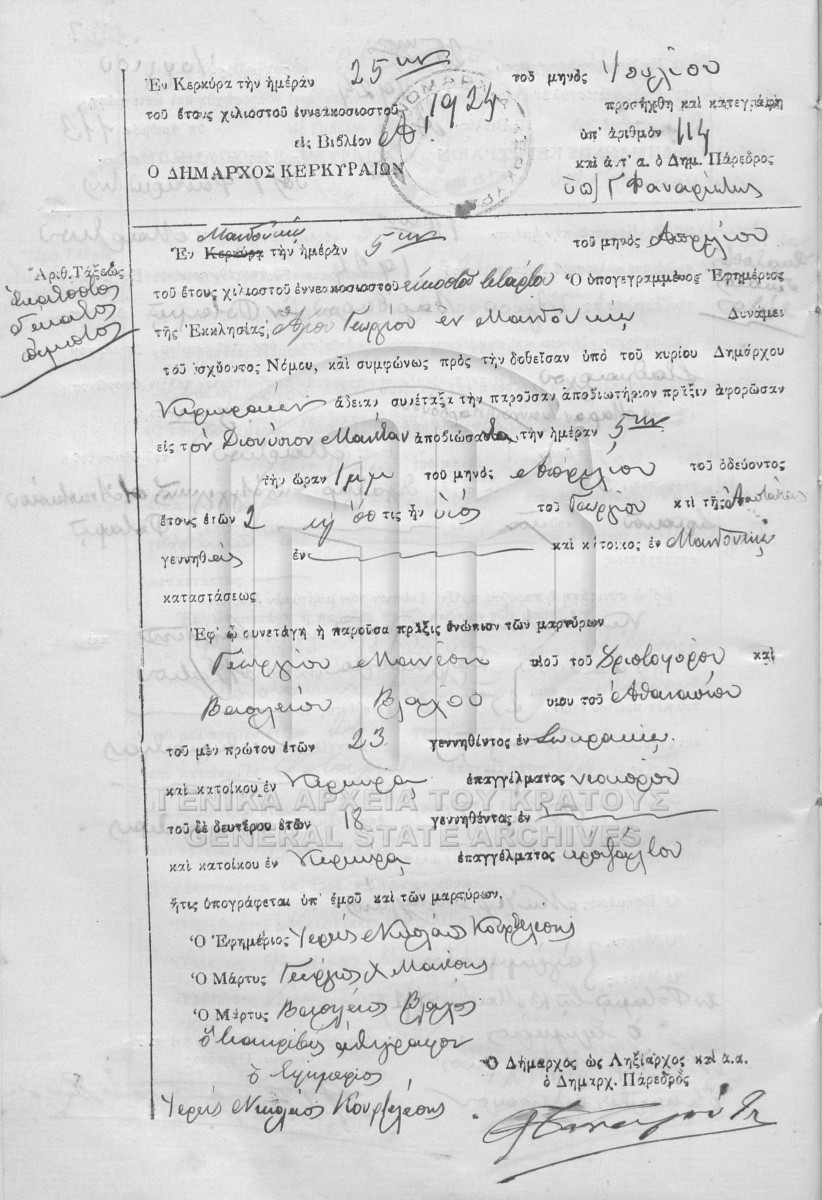 Ἐν Κερκύρᾳ τὴν ἡμέραν 25ην τοῦ μηνὸς
τοῦ ἔτους χιλιοστοῦ ἐννεακοσιοστοῦ 1924 προσήχθη καὶ κατεγράφη
εἰς Βιβλίον Α! ὑπ' ἀριθμὸν 114
Ο ΔΗΜΑΡΧΟΣ ΚΕΡΚΥΡΑΙΩΝ καὶ ἀ.τ'α. ὁ Δημ. Πάρεδρος
Μαντούκι
Ἐν Κερκύρᾳ τὴν ἡμέραν 5ην τοῦ μηνὸς Ἀπριλίου
Ἀριθ. Τάξεως
ἑκατοστὸς
δέκατος
τοῦ ἔτους χιλιοστοῦ ἐννεακοσιοστοῦ εἰκοστοῦ τετάρτου Ὁ ὑπογεγραμμένος Ἐφημέριος
τῆς Ἐκκλησίας, Ἁγίου Γεωργίου ἐν Μαντούκι Δυνάμει
τοῦ ἰσχύοντος Νόμου, καὶ συμφώνως πρὸς τὴν δοθεῖσαν ὑπὸ τοῦ κυρίου Δημάρχου
Κερκυραίων ἄδειαν συνέταξα τὴν παροῦσαν ἀποβιωτήριον πρᾶξιν ἀφορῶσαν
εἰς τὸν Διονύσιον ἀποβιώσαντα τὴν ἡμέραν 5ην
τὴν ὥραν 1 μ μ τοῦ μηνὸς Ἀπριλίου τοῦ ὁδεύοντος
ἔτους ἐτῶν 2 τις ἦν υἱὸς τοῦ Γεωργίου κὶ τῆς
γεννηθεὶς ἐν καὶ κάτοικος ἐν Μαντούκι
καταστάσεως
Ἐφ' ᾧ συνετάγη ἡ παροῦσα πρᾶξις ἐνώπιον τῶν μαρτύρων
Γεωργίου Μανέση υἱοῦ τοῦ Χριστοφόρου καὶ
Βασιλείου Βλάχου υἱοῦ τοῦ Ἀθανασίου
τοῦ μὲν πρώτου ἐτῶν 23 γεννηθέντος ἐν Σωκράκι
καὶ κατοίκου ἐν Κερκύρᾳ ἐπαγγέλματος νεωκόρου
ΓΕΝΙΚΑ ΑΡΧΕΙΑ ΤΟΥ ΚΡΑΤΟΥΣ
τοῦ δὲ δευτέρου ἐτῶν 18 γεννηθέντος ἐν
GENERAL STATE ARCHIVES
καὶ κατοίκου ἐν Κερκύρᾳ ἐπαγγέλματος
ἥτις ὑπογράφεται ὑπ' ἐμοῦ καὶ τῶν μαρτύρων.
Ὁ Ἐφημέριος Ἱερεὺς Νικόλαος Κουρβελέσης
Ὁ Μάρτυς Γεώργιος Χ Μανέσης
Ὁ Μάρτυς Βασίλειος Βλάχος
Ὁ Δήμαρχος ὡς Ληξίαρχος καὶ ἀ.α.
ὁ Δημαρχ. Πάρεδρὸς
ὁ Ἐφημέριος
Ἱερεὺς Νικόλαος Κουρβελέσης